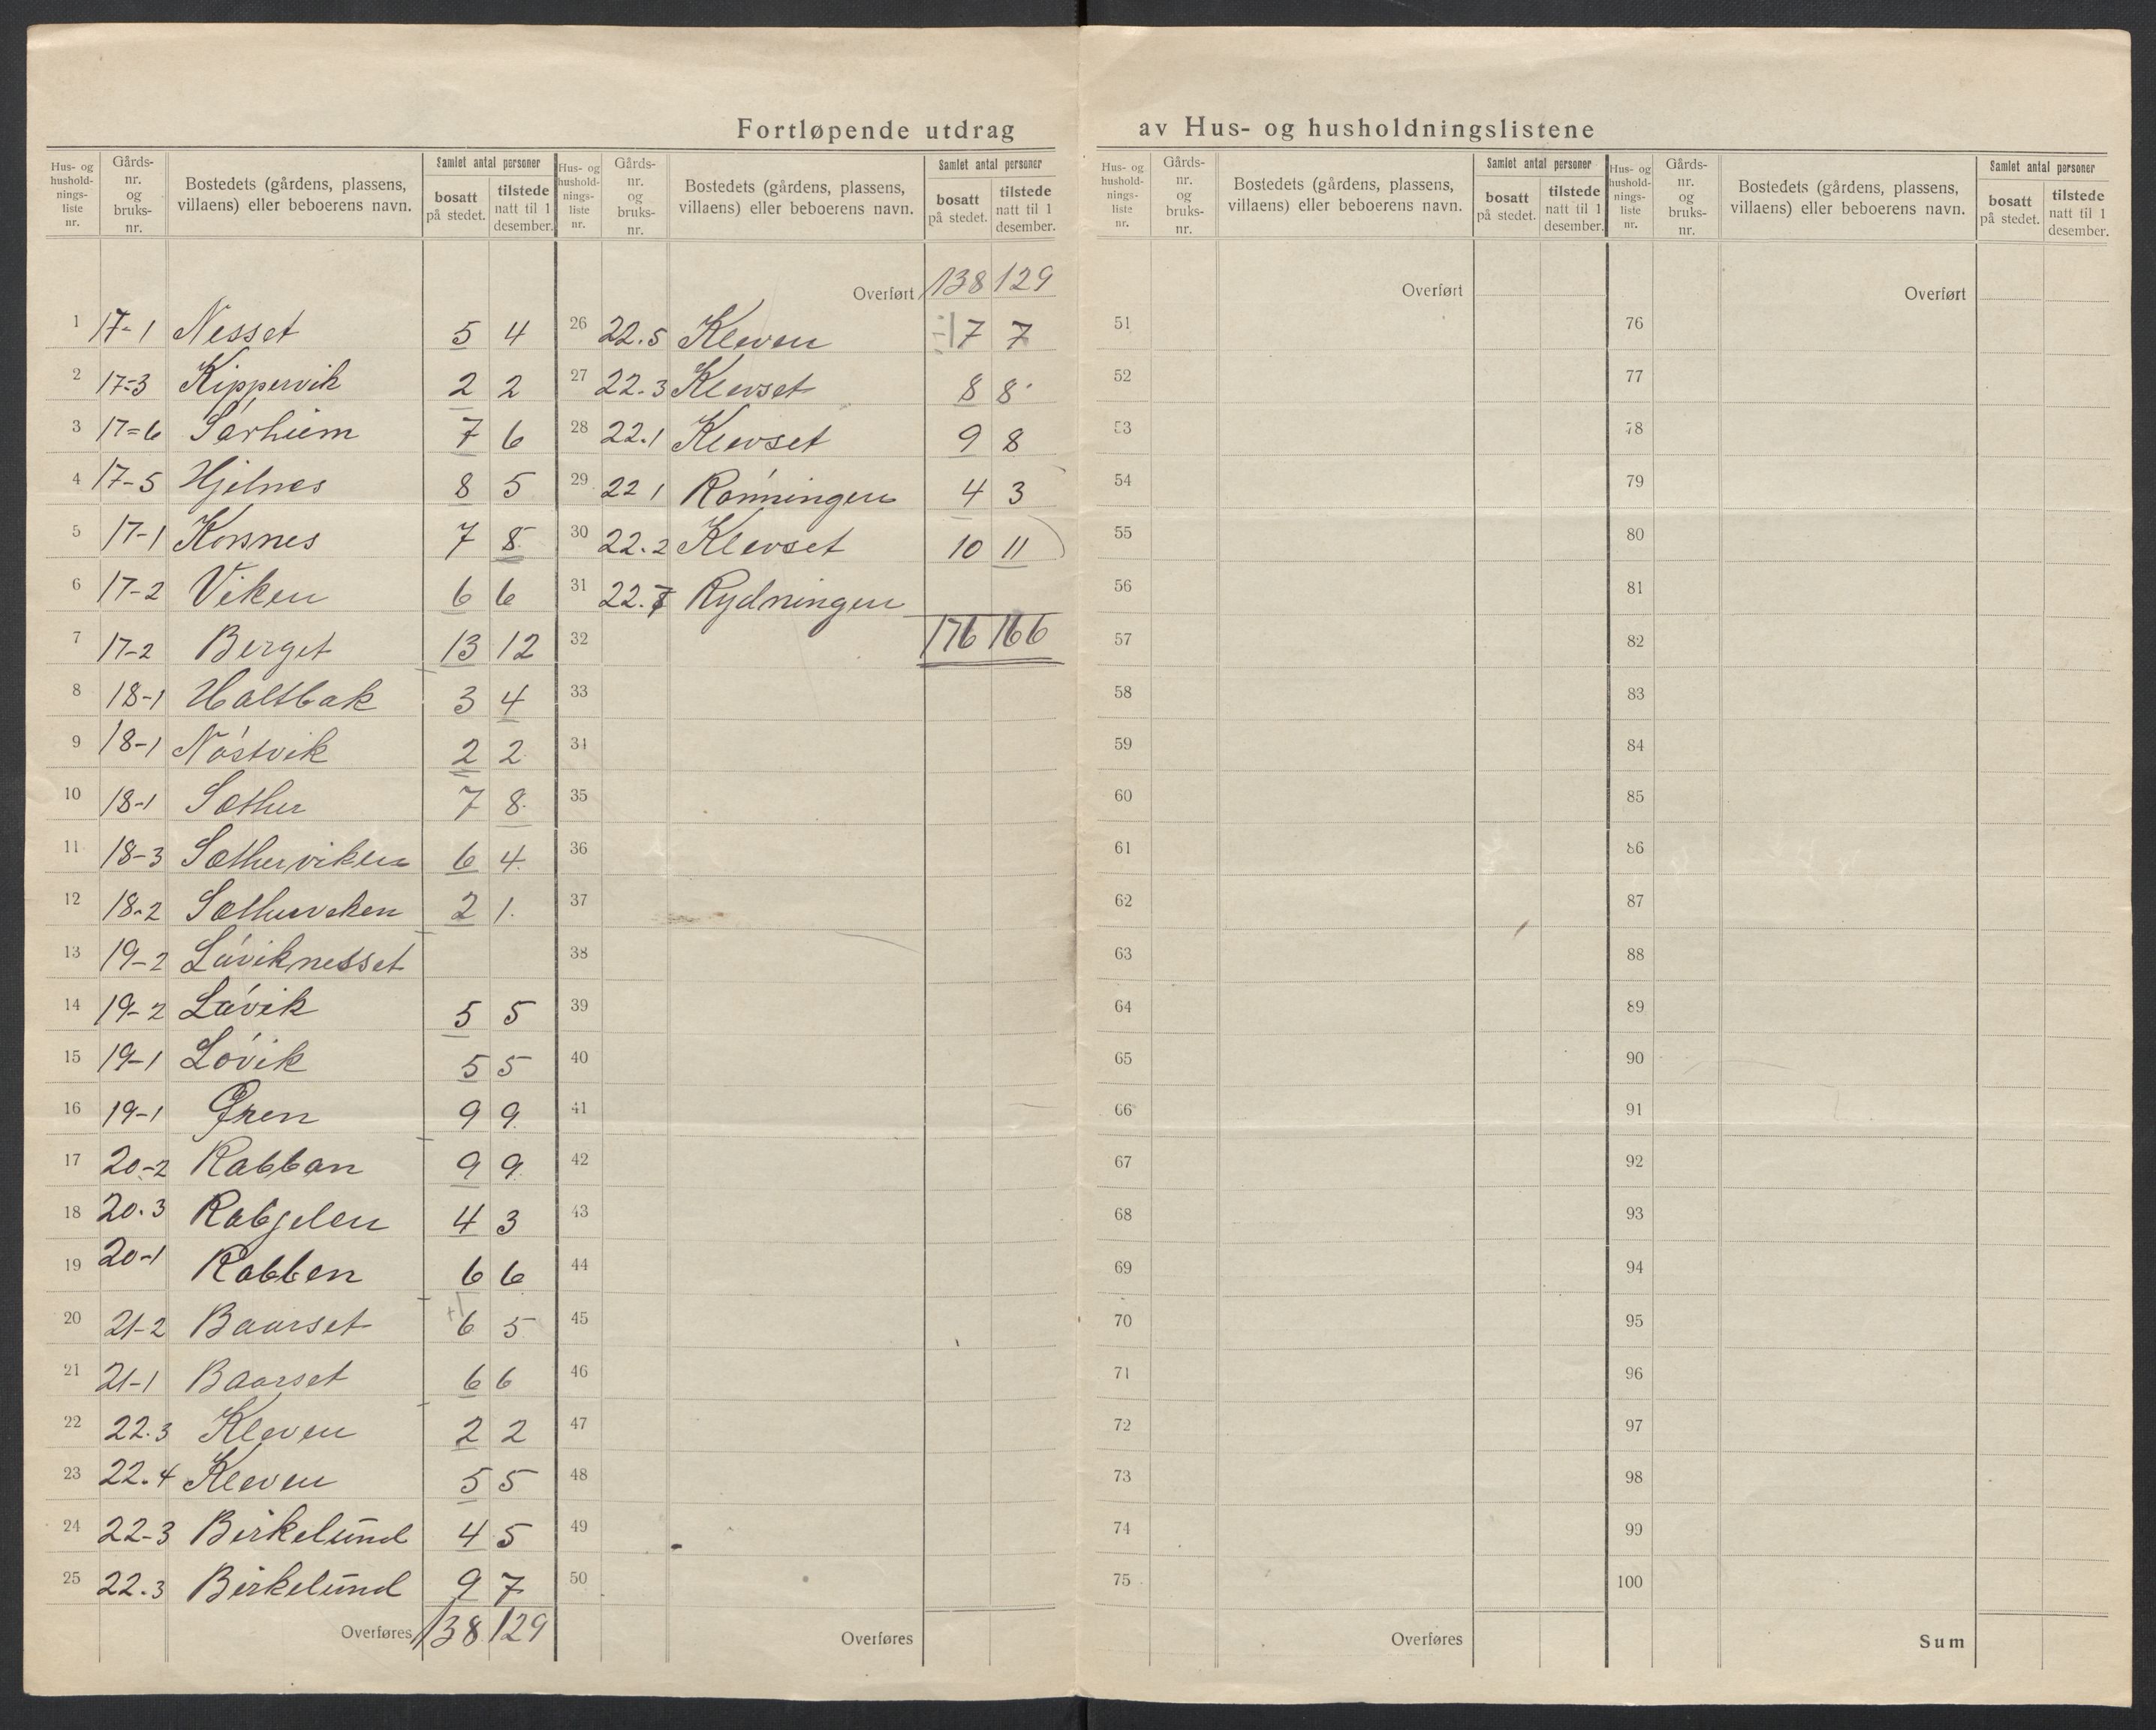 Fortløpende utdrag av Hus- og husholdningslistene
Hus- og hushold- nings- liste nr. Gårds- nr. og bruks- nr. Bostedets (gårdens, plassens, villaens) eller beboerens navn. Samlet antal personer bosatt på stedet. tilstede natt til 1 desember.
1 17-1 Nesset 5 4
2 17-3 Kippervik 2 2
3 17=6 Sørheim 7 6
4 17-5 Hjelnes 8 5
5 17-1 Korsnes 7 8
6 17-2 Viken 6 6
7 17-2 Berget 13 12
8 18-1 Holtbak 3 4
9 18-1 Nóstvik 2 2
10 18-1 Sæther 7 8
11 18-3 Sætherviken 6 4
12 18-2 Sætherviken 2 1
13 19-2 Lóviknesset
14 19-2 Lóvik 5 5
15 19-1 Lóvik 5 5
16 19-1 Øren 9 9
17 20-2 Rabban 9 9
18 20.3 Rabjelen 4 3
19 20-1 Rabben 6 6
20 21-2 Baarset +1 6 5
21 21-1 Baarset 6 6
22 22.3 Kleven 2 2
23 22.4 Kleven 5 5
24 22-3 Birkelund 4 5
25 22.3 Birkelund 9 7
Overføres 138 129
Hus- og hushold- nings- liste nr. Gårds- nr. og bruks- nr. Bostedets (gårdens, plassens, villaens) eller beboerens navn. Samlet antal personer bosatt på stedet. tilstede natt til 1 desember.
Overført 138 129
26 22.5 Kleven ÷1 7 7
27 22.3 Klevset 8 8
28 22.1 Klevset 9 8
29 22 1 Rønningen 4 3
30 22.2 Klevset 10 11
31 22.7 Rydningen
32 176 166
33
34
35
36
37
38
39
40
41
42
43
44
45
46
47
48
49
50
Overføres
Hus- og hushold- nings- liste nr. Gårds- nr. og bruks- nr. Bostedets (gårdens, plassens, villaens) eller beboerens navn. Samlet antal personer bosatt på stedet. tilstede natt til 1 desember.
Overført
51
52
53
54
55
56
57
58
59
60
61
62
63
64
65
66
67
68
69
70
71
72
73
74
75
Overføres
Hus- og hushold- nings- liste nr. Gårds- nr. og bruks- nr. Bostedets (gårdens, plassens, villaens) eller beboerens navn. Samlet antal personer bosatt på stedet. tilstede natt til 1 desember.
Overført
76
77
78
79
80
81
82
83
84
85
86
87
88
89
90
91
92
93
94
95
96
97
98
99
100
Sum